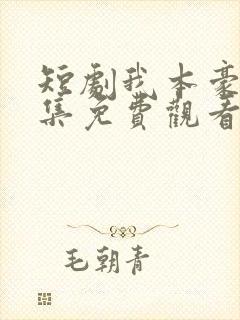 短劇我本豪
集免費觀看
毛朝青